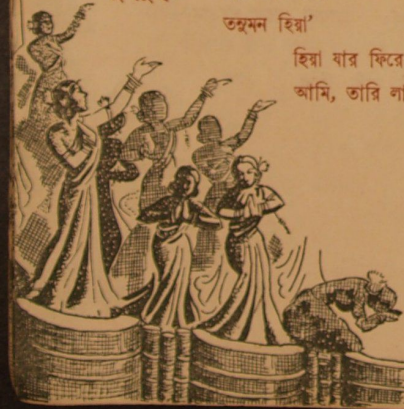 তনুমন হিয়া'
হিয়া যার ফিরে
আমি, তারি